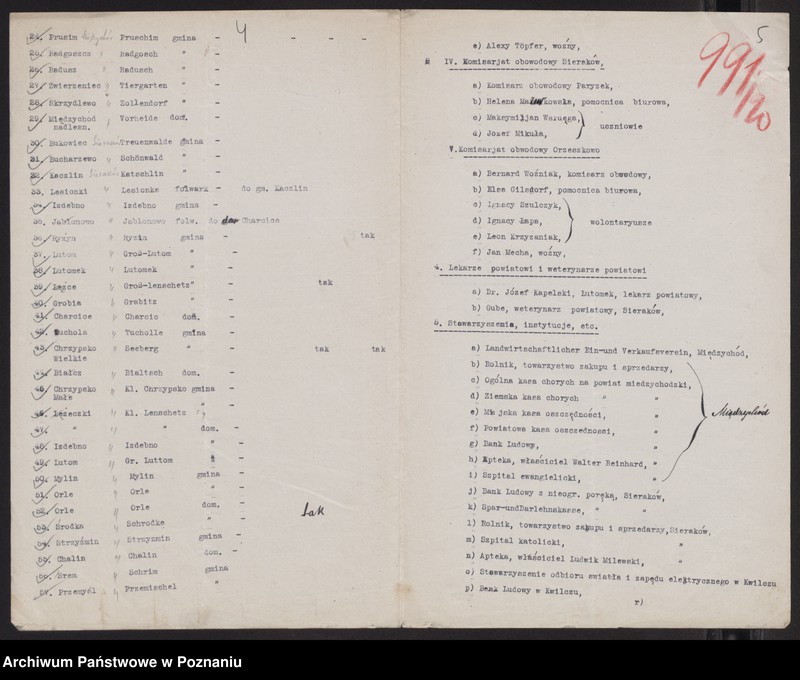 4
24. Prusim Pruschim gmina - - - -
25. Radgoszcz " Radgosch " -
26. Radusz " Radusch " -
27. Zwierzeniec " Tiergarten " -
28. Skrzydlewo " Zollendorf " -
29. Międzychód " Vorheide dom. -
nadleśn.
30. Bukowiec Treuenwalde gmina -
31. Bucharzewo " Schönwald " -
32. Kaczlin Katschlin " -
33. Lesionki " Lesionke folwark - do gm. Kaczlin
34. Izdebno " Izdebno gmina -
35. Jabłonowo " Jablonowo folw. do Charcice
36. Ryżyn " Ryzin gmina - tak
37. Lutom " Groß-Lutom " -
38. Lutomek " Lutomek " -
39. Łężce " Groß-lenschetz " - tak
40. Grobia " Grabitz " -
41. Charcice " Charcic dom. -
42. Tuchola " Tucholle gmina -
43. Chrzypsko " Seeberg " - tak tak
Wielkie
44. Białcz " Bialtsch dom. -
45. Chrzypsko " Kl. Chrzypsko gmina -
Małe
46. Łężeczki " Kl. Lenschetz " -
47. " " " dom. -
48. Izdebno " Izdebno " -
49. Lutom " Gr. Luttom " -
50. Mylin " Mylin gmina -
51. Orle " Orle " -
52. Orle " Orle dom. - tak
53. Środka " Schrodke " -
54. Strzyżmin " Strzyzmin gmina -
55. Chalin " Chalin dom. -
56. Śrem " Schrim gmina
57. Przemyśl " Przemischel "
5
991/20
e) Alexy Töpfer, woźny,
IV. Komisarjat obwodowy Sieraków,
a) Komisarz obwodowy Paryzek,
b) Helena pomocnica biurowa,
c) Maksymiljan Waruęga,
d) Józef Mikuła, uczniowie
V. Komisarjat obwodowy Orzeszkowo
a) Bernard Woźniak, komisarz obwodowy,
b) Elsa Gilsdorf, pomocnica biurowa,
c) Ignacy Szulczyk,
d) Ignacy Łapa, wolontaryusze
e) Leon Krzyzaniak,
f) Jan Mecha, woźny,
4. Lekarze powiatowi i weterynarze powiatowi
a) Dr. Józef Kapelski, Lutomek, lekarz powiatowy,
b) Gube, weterynarz powiatowy, Sieraków,
5. Stowarzyszenia, instytucje, etc.
a) Landwirtschaftlicher Ein-und Verkaufsverein, Międzychód,
b) Rolnik, towarzystwo zakupu i sprzedarzy,
c) Ogólna kasa chorych na powiat miedzychodzki,
d) Ziemska kasa chorych " "
e) Miejska kasa oszczędności, " Międzychód
f) Powiatowa kasa oszczednosci, "
g) Bank Ludowy, "
h) Apteka, właściciel Walter Reinhard, "
i) Szpital ewangielicki, "
j) Bank Ludowy z nieogr. poręką, Sieraków,
k) Spar-undDarlehnskasse, " "
l) Rolnik, towarzystwo zakupu i sprzedarzy, Sieraków,
m) Szpital katolicki, "
n) Apteka, właściciel Ludwik Milewski, "
o) Stowarzyszenie odbioru swiatła i zapędu elektrycznego w Kwilczu
p) Bank Ludowy w Kwilczu,
r)
Archiwum Państwowe w Poznaniu